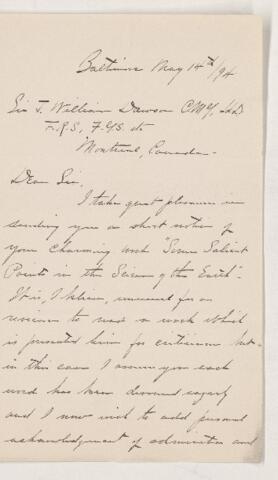 Baltimore May 14th/94
Sir J. William Dawson C.M.G., LLD
F.R.S., F.G.S. etc
Montreal, Canada -
Dear Sir,
I take great pleasure in
sending you a short notice of
your charming work "Some Salient
Points in the Science of the Earth".
It is, I believe, unusual for a
reviewer to read a work which
is presented him for criticism but
in this case I assure you each
word has been devoured eagerly
and I now wish to add personal
acknowledgment of admiration and